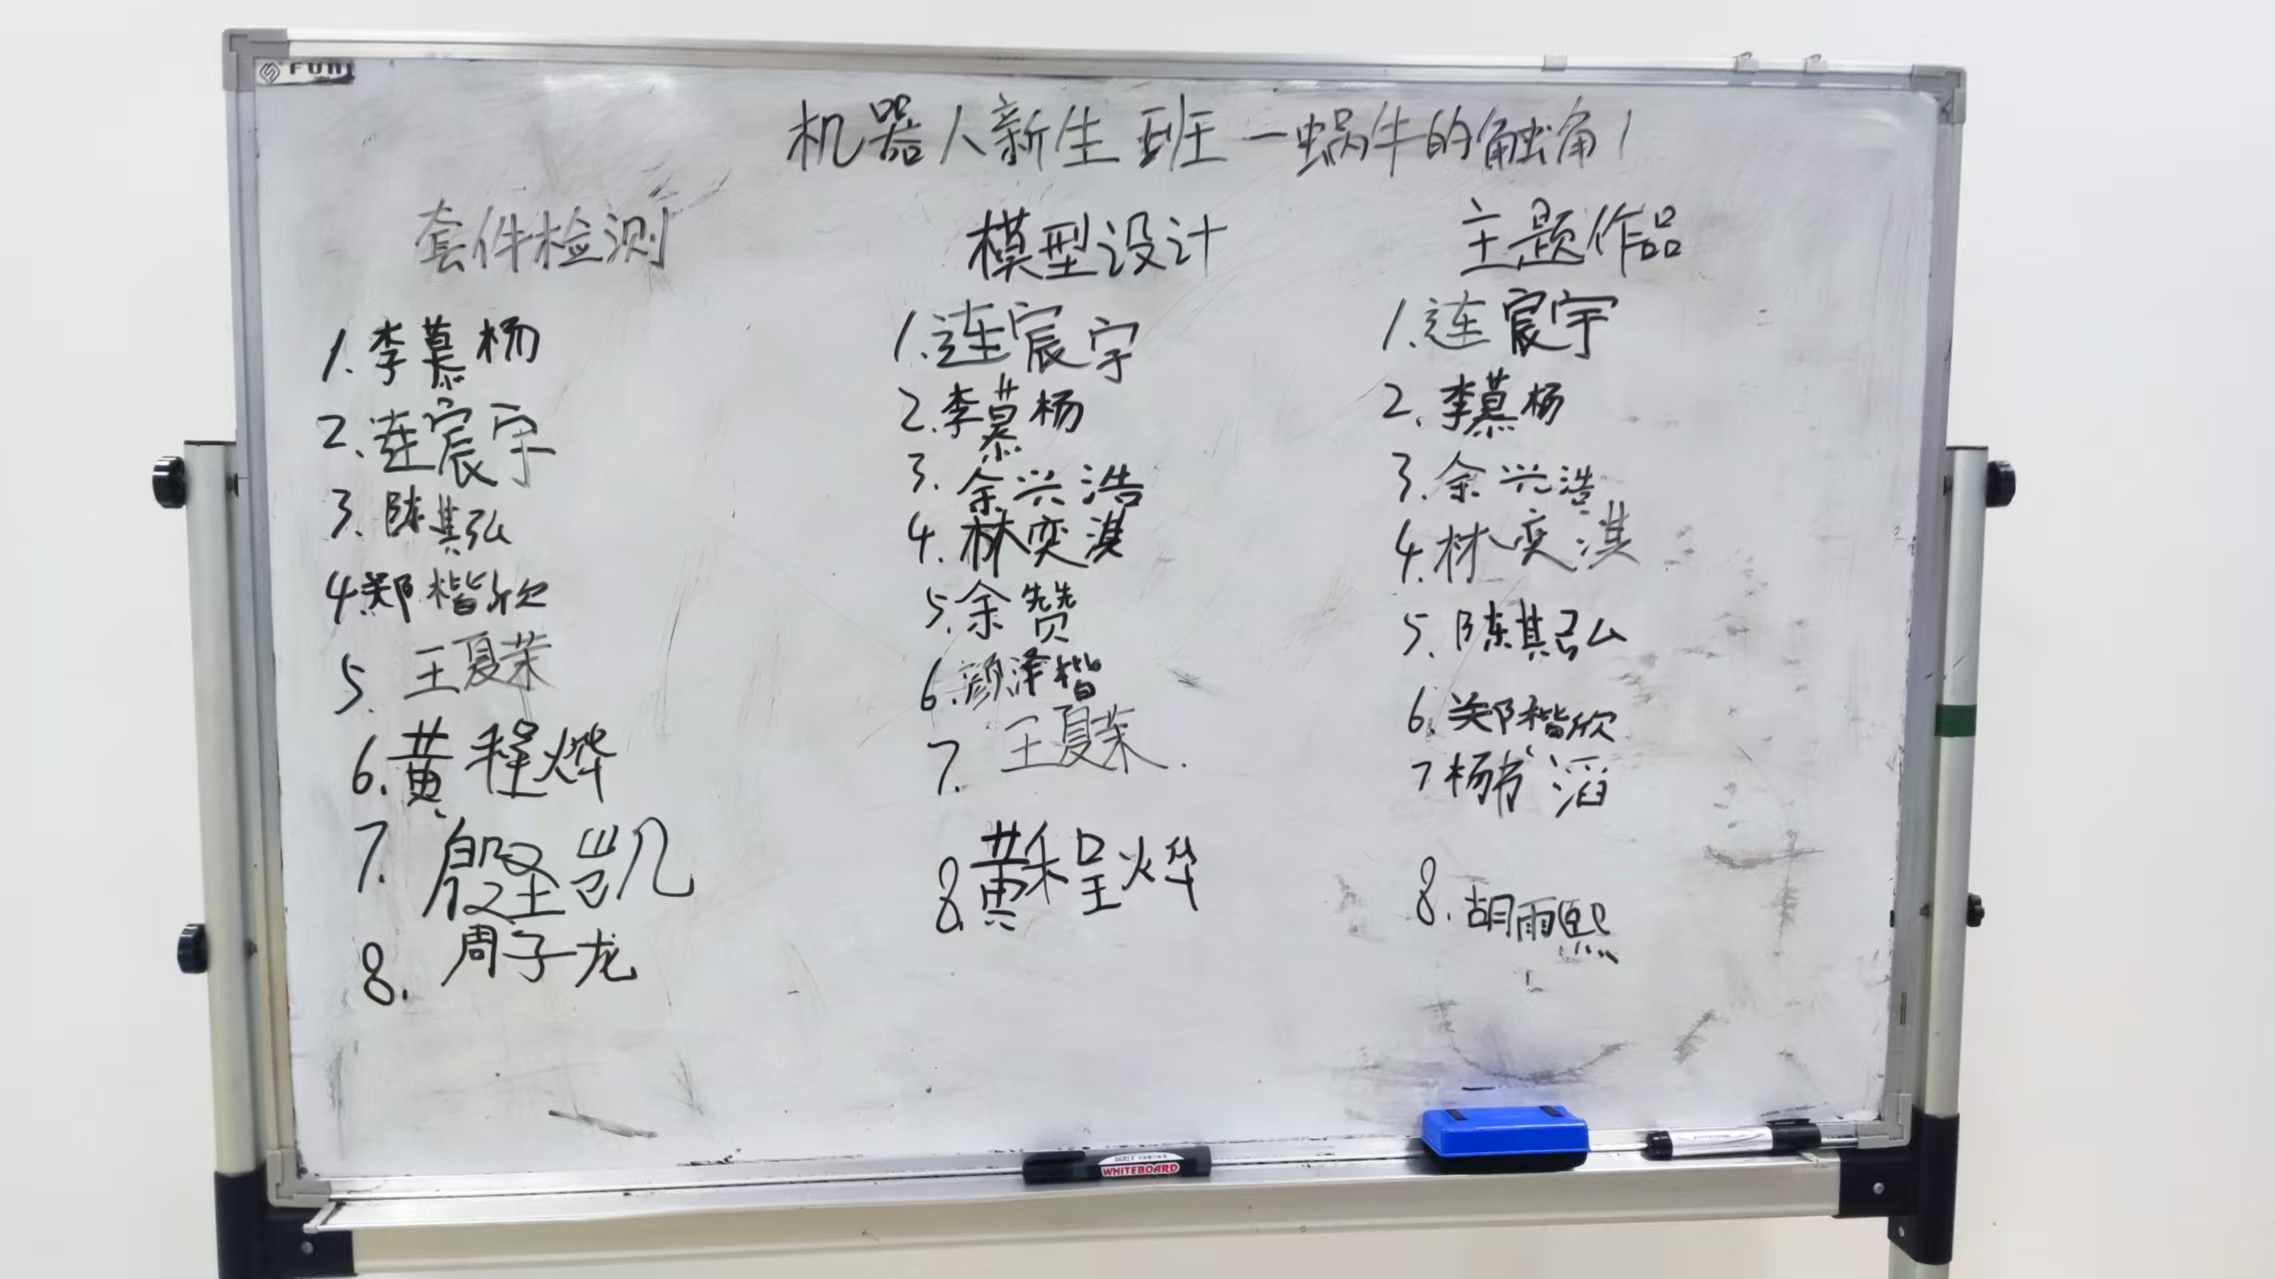 FUNI
机器人新生班一蜗牛的触角1
套件检测
1.李慕杨
2.连宸宇
3.陈其弘
4.郑楷欣
5.王夏茉
6.黄程烨
7.殷圣凯
8.周子龙
模型设计
1.连宸宇
2.李慕杨
3.余兴浩
4.林奕淇
5.余赞
6.颜泽楷
7.王夏茉.
8.黄程烨
主题作品
1.连宸宇
2.李慕杨
3.余兴浩
4.林奕淇
5.陈其弘
6.郑楷欣
7杨书滔
8.胡雨熙
WHITEBOARD